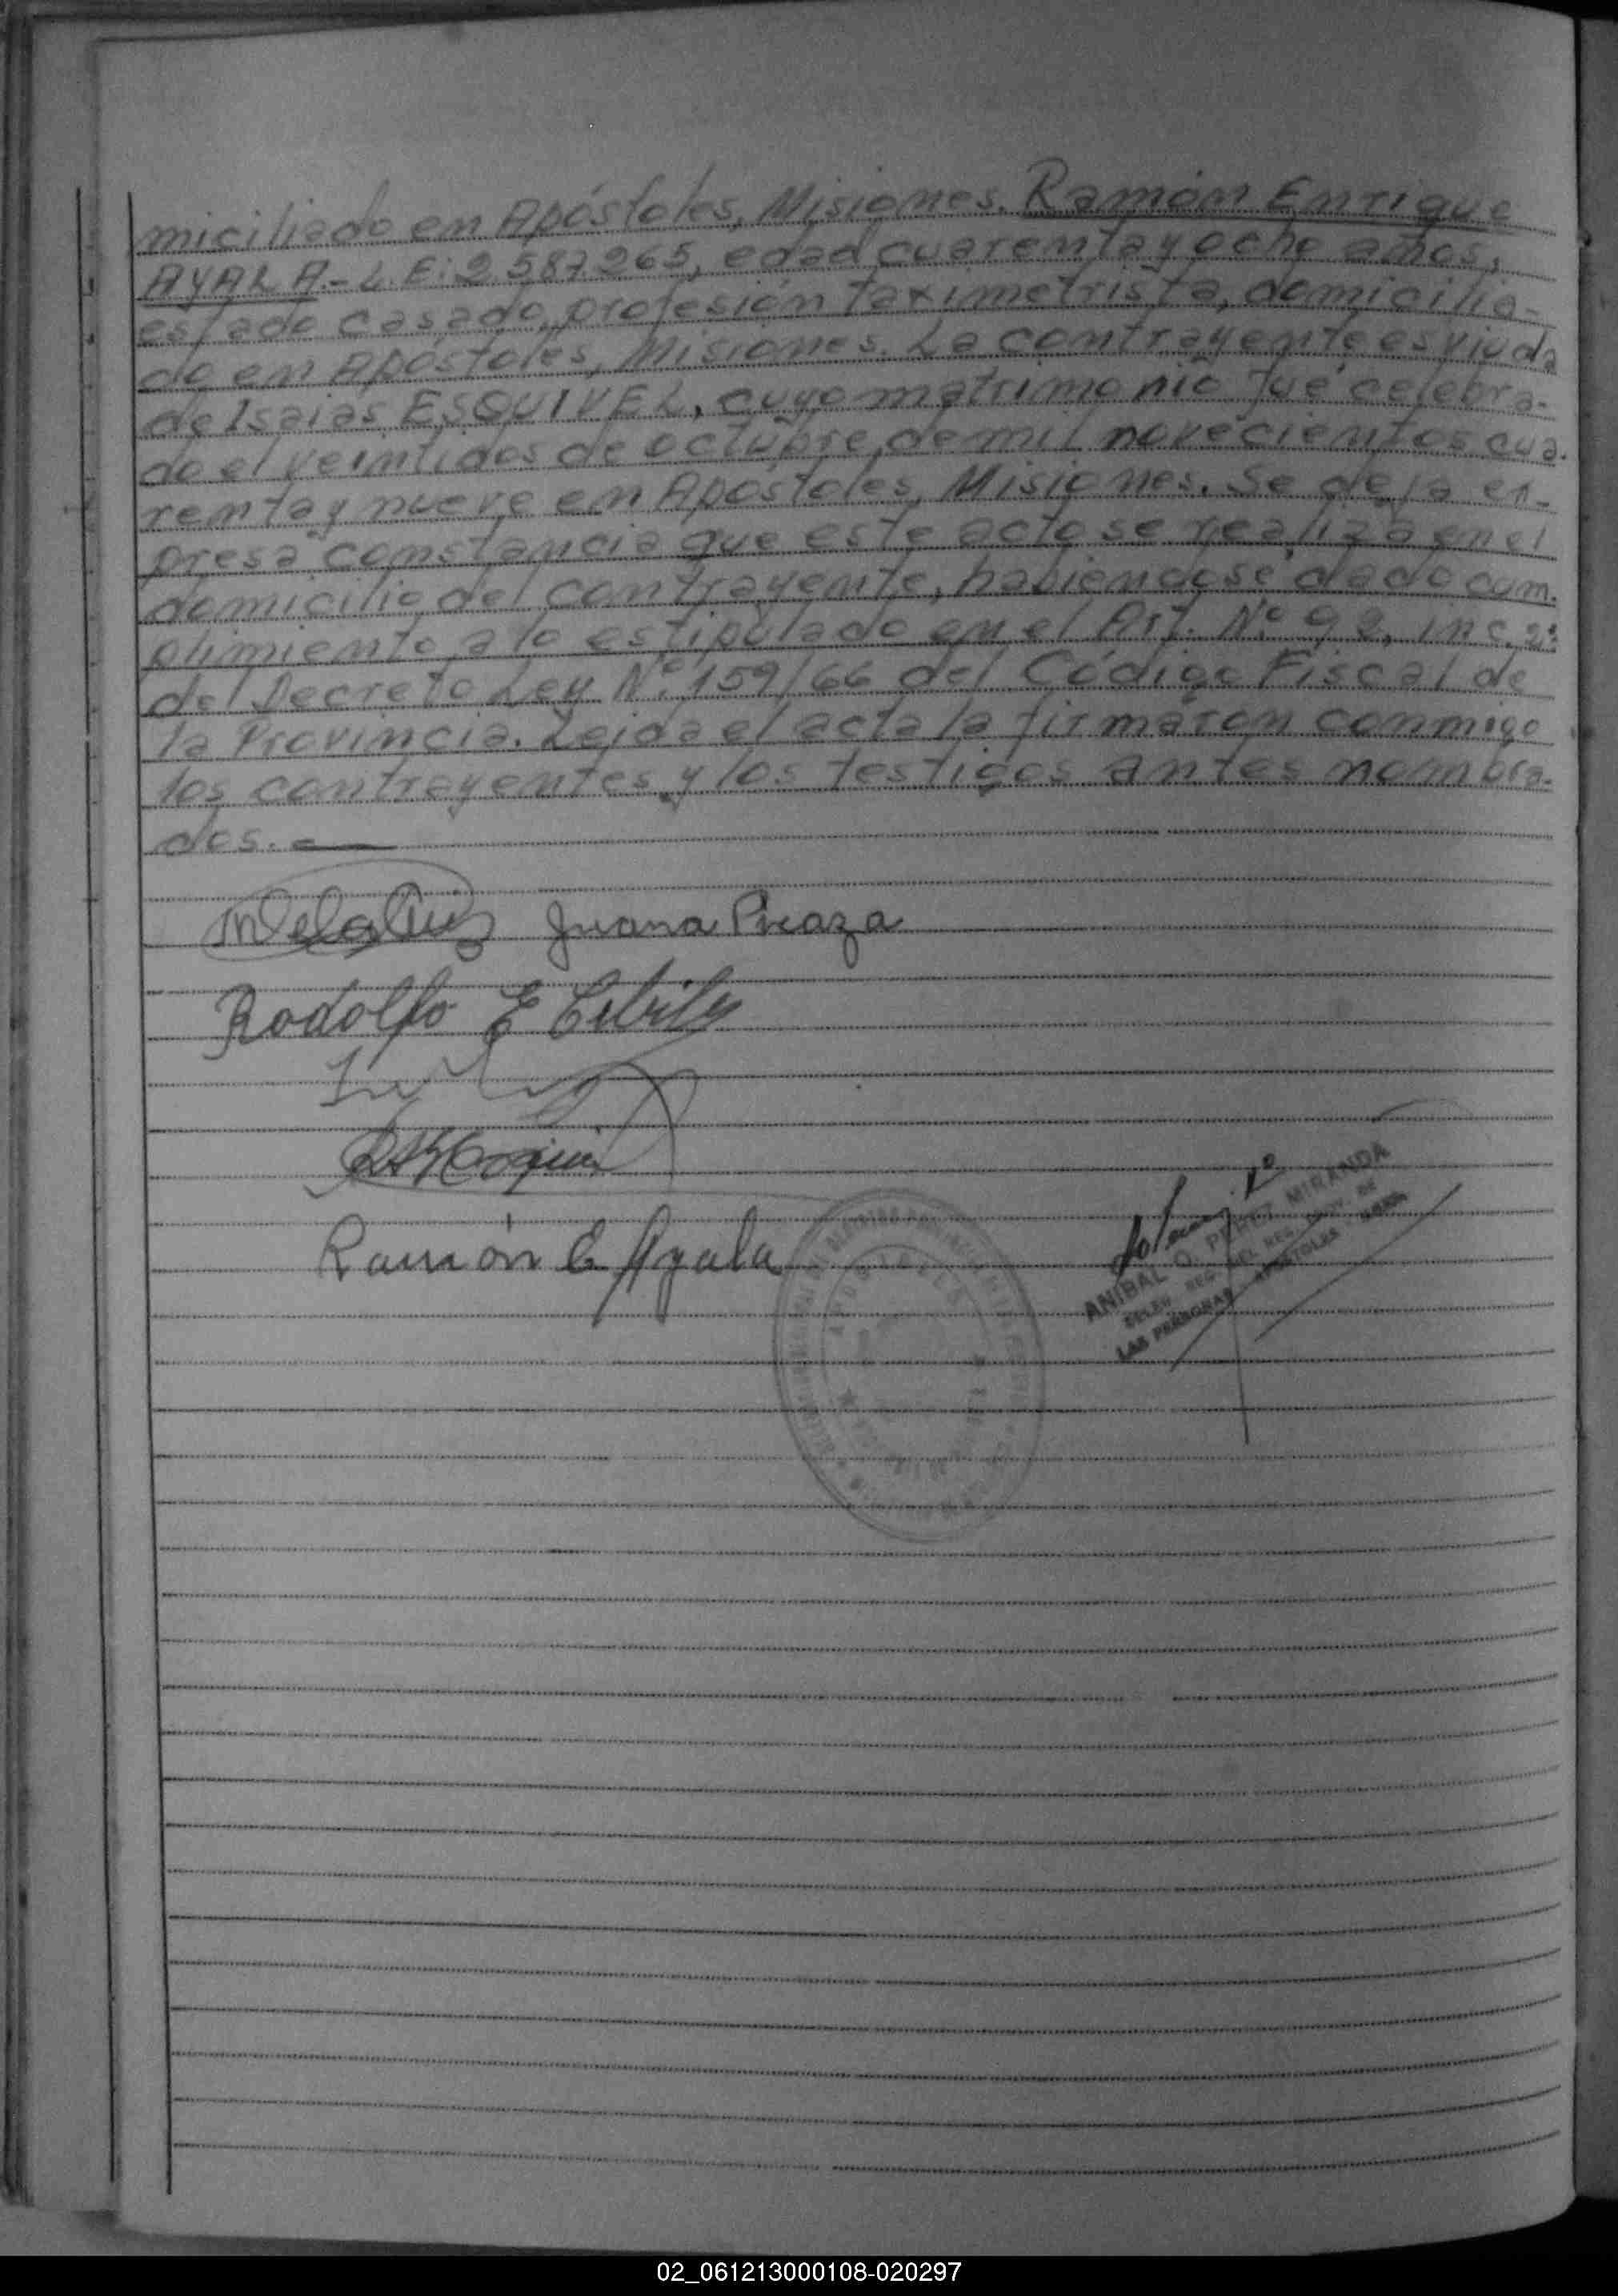 miciliado en Apóstoles, Misiones. Ramón Enrique
AYALA.- L.E: 2.587.265, edad cuarenta y ocho años,
estado casado, profesión taximetrista, domicilia-
do en Apóstoles, Misiones. La contrayente es viuda
de Isaias ESQUIVEL, cuyo matrimonio fué celebra-
do el veintidos de octubre de mil novecientos cua-
renta y nueve en Apóstoles, Misiones. Se deja ex-
presa constancia que este acto se realiza en el
domicilio del contrayente, habiendose dado cum-
plimiento a lo estipulado en el Art. Nº 92, inc. 2º
del Decreto Ley Nº 159/66 del Código Fiscal de
la Provincia. Leida el acta la firmaron conmigo
los contrayentes y los testigos antes nombra-
dos.
Juana Picaza
Rodolfo E
Ramón E Ayala
APOSTOLES
ANIBAL O. PEREZ MIRANDA
DELEG. REG. DEL REG. PROV. DE
LAS PERSONAS APOSTOLES
02_061213000108-020297